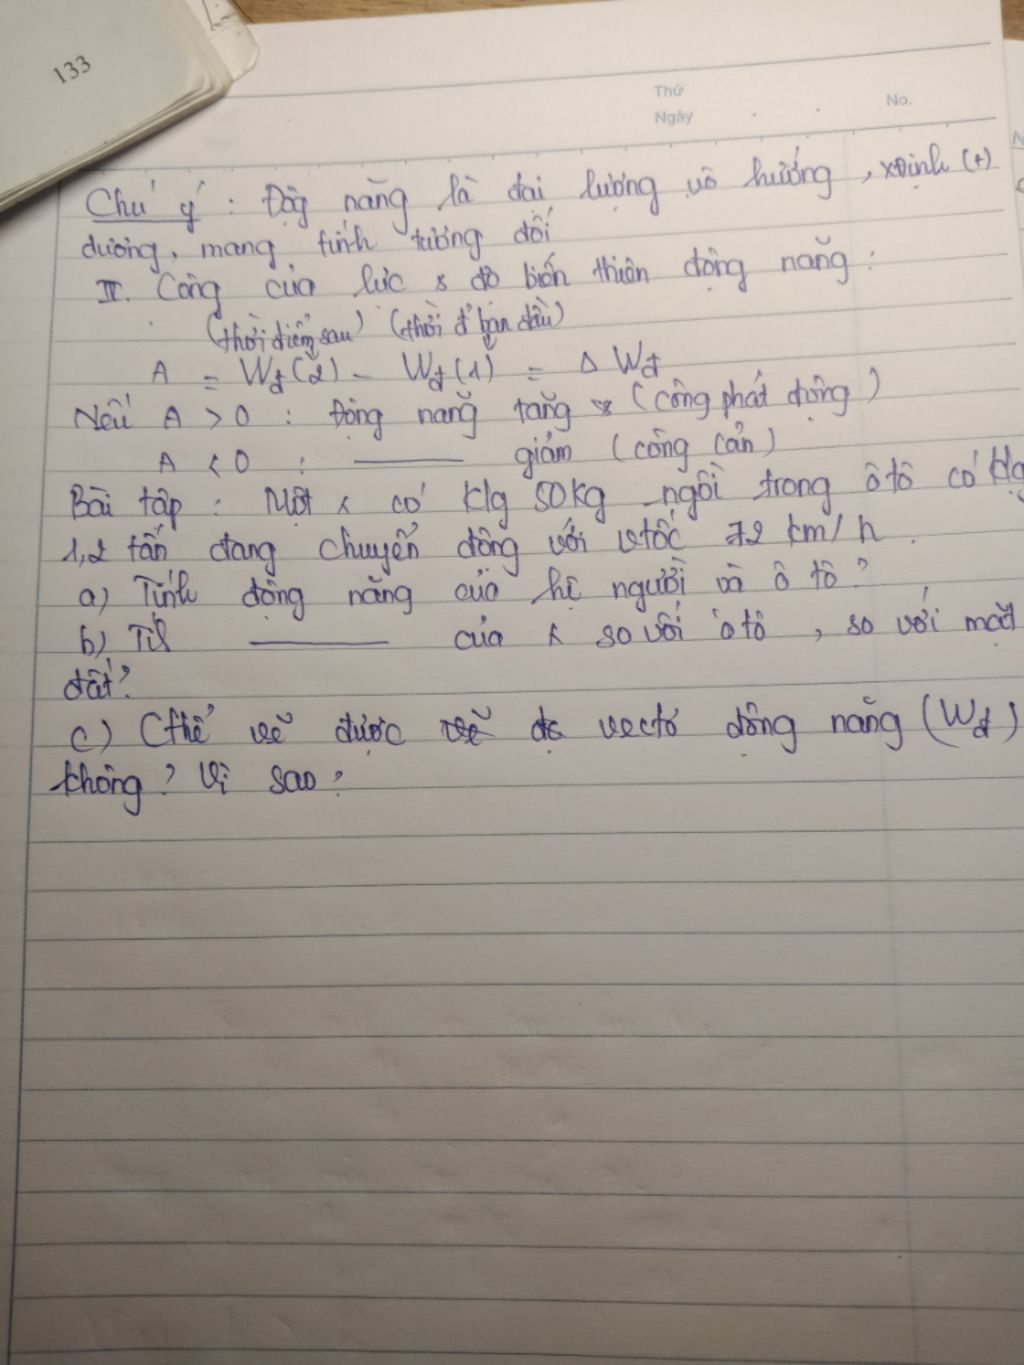 133
Thứ
Ngày
No.
Chú ý : Động năng là đại lượng vô hướng , xđịnh (+)
dương, mang tính tương đối
II. Công của lực & độ biến thiên động năng :
(thời điểm sau) (thời đ' ban đầu)
A = Wđ(2) - Wđ(1) = Δ Wđ
Nếu A > 0 : Động năng tăng (công phát động)
A < 0 : ——— giảm (công cản)
Bài tập : Một có klg 50kg ngồi trong ô tô có klg
1,2 tấn đang chuyển động với vtốc 72 km/h .
a) Tính động năng của hệ người và ô tô ?
b) T/s ——— của so với ô tô , so với mặt
đất ?
c) Cthể vẽ được vectơ động năng (Wđ)
không ? Vì sao ?